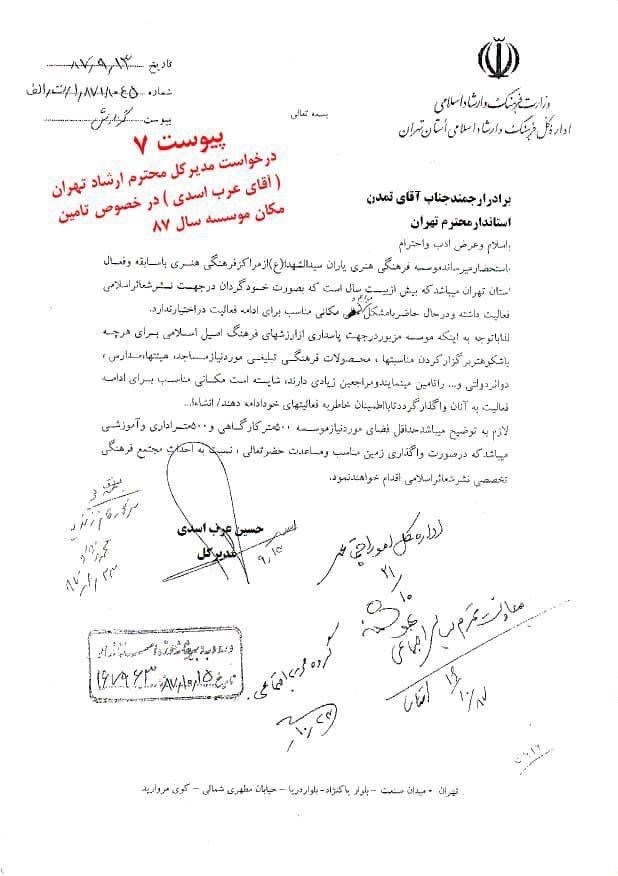 وزارت فرهنگ و ارشاد اسلامی
اداره کل فرهنگ و ارشاد اسلامی استان تهران
بسمه تعالی
تاریخ ۸۷٫۹٫۱۳
شماره
پیوست گزارش
پیوست ۷
درخواست مدیر کل محترم ارشاد تهران
( آقای عرب اسدی ) در خصوص تامین
مکان موسسه سال ۸۷
برادر ارجمند جناب آقای تمدن
استاندار محترم تهران
باسلام وعرض ادب واحترام
باستحضار میرساند موسسه فرهنگی هنری یاران سیدالشهدا(ع)از مراکز فرهنگی هنری باسابقه وفعال
استان تهران میباشد که بیش ازبیست سال است که بصورت خودگردان درجهت نشرشعائراسلامی
فعالیت داشته ودرحال حاضربامشکل مکانی مناسب برای ادامه فعالیت دراختیارندارد.
لذاباتوجه به اینکه موسسه مزبوردرجهت پاسداری ازارزشهای فرهنگ اصیل اسلامی برای هرچه
باشکوهتربرگزارکردن مناسبتها ، محصولات فرهنگی تبلیغی موردنیازمساجد، هیئتها،مدارس ،
دوائردولتی و... راتامین مینمایندومراجعین زیادی دارند، شایسته است مکانی مناسب برای ادامه
فعالیت به آنان واگذارگرددتاباطمینان خاطربه فعالیتهای خودادامه دهند/ انشاءا...
لازم به توضیح میباشدحداقل فضای موردنیازموسسه ۵۰۰مترکارگاهی و۵۰۰متراداری وآموزشی
میباشدکه درصورت واگذاری زمین مناسب ومساعدت حضرتعالی ، نسبت به احداث مجتمع فرهنگی
تخصصی نشرشعائراسلامی اقدام خواهندنمود.
حسین عرب اسدی
مدیرکل
اداره کل امور اجتماعی
معاونت محترم سیاسی اجتماعی
۱۶/۱۰/۸۷
تاریخ ۸۷٫۱۰٫۱۵
۱۶۷۹۶۳
تهران - میدان صنعت - بلوار پاکنژاد- بلواردریا - خیابان مطهری شمالی - کوی مروارید